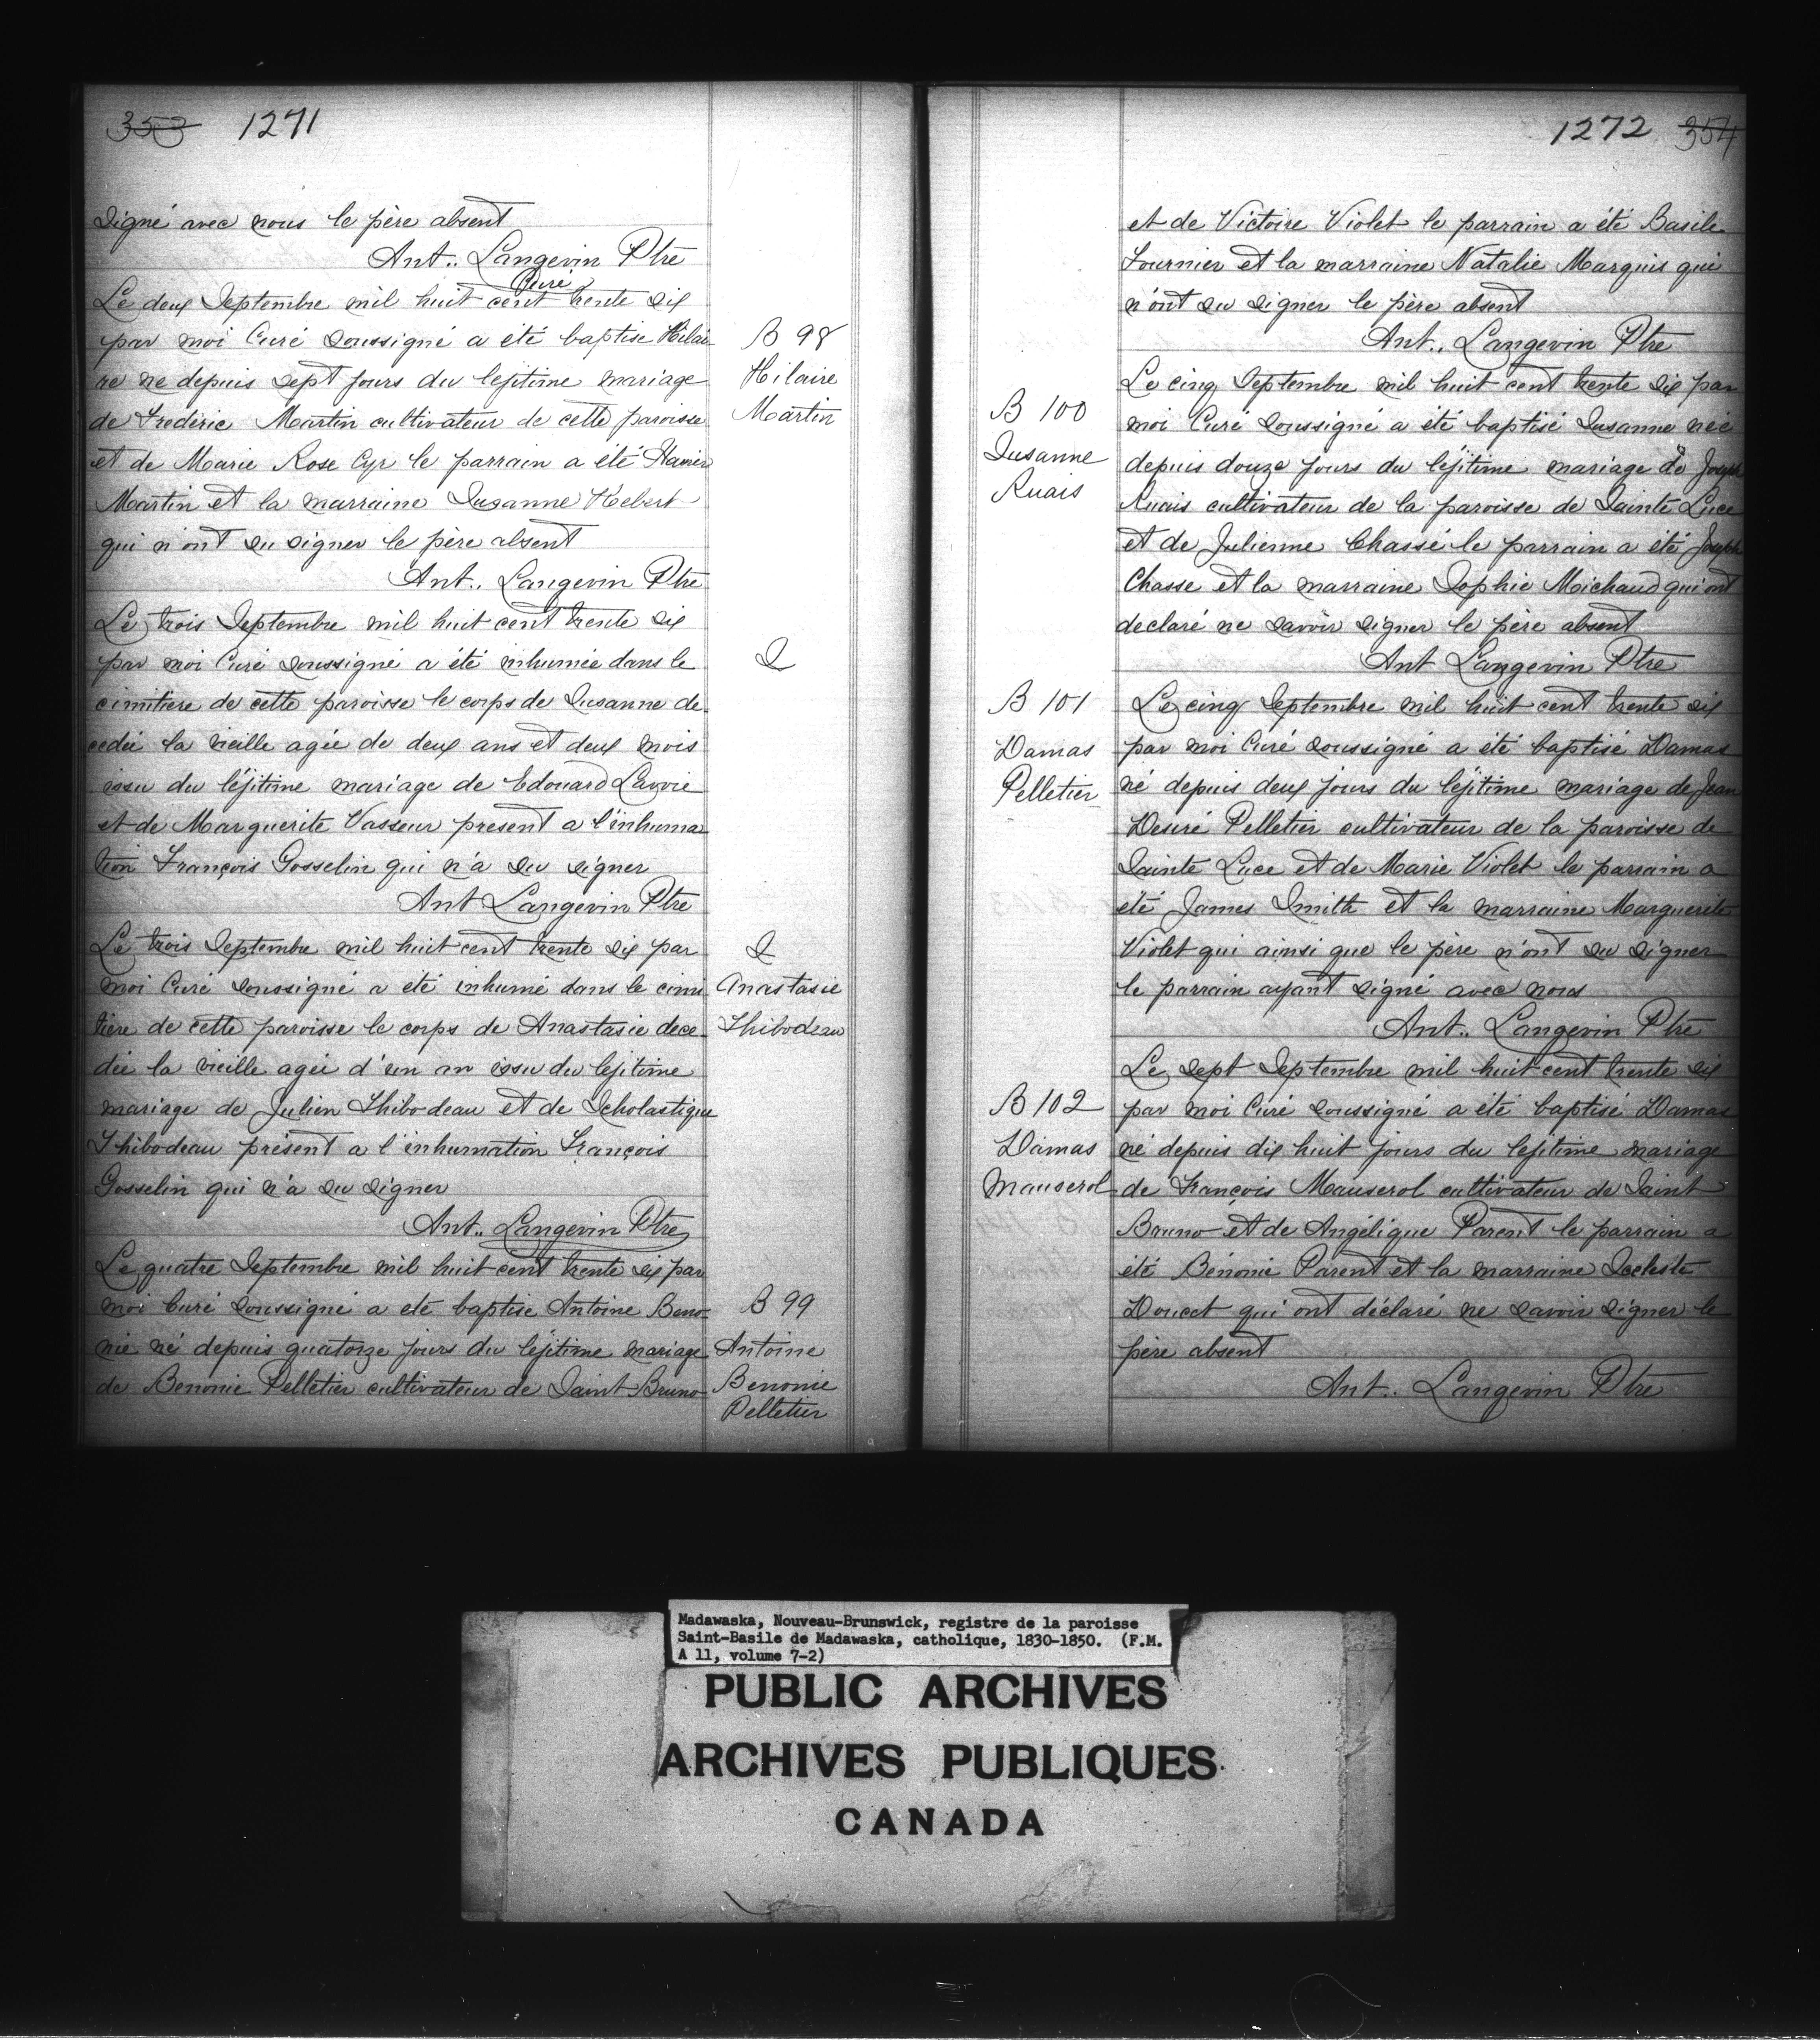 353 1271
signé avec nous le père absent
Ant.. Langevin Ptre
Curé
Le deux Septembre mil huit cent trente six
par moi Curé soussigné a été baptise Hilai-
re né depuis sept jours du lejitime mariage
de Fredéric Martin cultivateur de cette paroisse
et de Marie Rose Cyr le parrain a été
Martin et la marraine Susanne Hebert
qui n'ont su signer le père absent
Ant.. Langevin Ptre
B 98
Hilaire
Martin
Le trois Septembre mil huit cent trente six
par moi Curé soussigné a été inhumée dans le
cimitiere de cette paroisse le corps de Susanne de-
cedée la vieille agée de deux ans et deux mois
issu du léjitime mariage de Edouard Lavoie
et de Marguerite Vasseur present a l'inhuma-
tion François Gosselin qui n'a su signer
Ant Langevin Ptre
S
Le trois Septembre mil huit cent trente six par
moi Curé soussigné a été inhumé dans le cimi-
tière de cette paroisse le corps de Anastasie dece-
dée la vieille agée d'un an issu du lejitime
mariage de Julien Thibodeau et de Scholastique
Thibodeau présent a l'inhumation François
Gosselin qui n'a su signer
Ant.. Langevin Ptre
S
Anastasie
Thibodeau
Le quatre Septembre mil huit cent trente six par
moi Curé soussigné a eté baptise Antoine Beno-
nie né depuis quatorze jours du léjitime mariage
de Benonie Pelletier cultivateur de Saint Bruno
B 99
Antoine
Benonie
Pelletier
1272 354
et de Victoire Violet le parrain a été Basile
Fournier et la marraine Natalie Marquis qui
n'ont su signer le père absent
Ant.. Langevin Ptre
B 100
Susanne
Ruais
Le cinq Septembre mil huit cent trente six par
moi Curé soussigné a été baptisé Susanne neé
depuis douze jours du léjitime mariage de Joseph
Ruais cultivateur de la paroisse de Sainte Luce
et de Julienne Chassé le parrain a été Joseph
Chasse et la marraine Sophie Michaud qui ont
declaré ne savoir signer le père absent
Ant Langevin Ptre
B 101
Damas
Pelletier
Le cinq Septembre mil huit cent trente six
par moi Curé soussigné a été baptisé Damas
né depuis deux jours du léjitime mariage de Jean
Desiré Pelletier cultivateur de la paroisse de
Sainte Luce et de Marie Violet le parrain a
été James Smith et la marraine Marguerite
Violet qui ainsi que le père n'ont su signer
le parrain ayant signé avec nous
Ant.. Langevin Ptre
B 102
Damas
Mauserol
Le sept Septembre mil huit cent trente six
par moi Curé soussigné a été baptisé Damas
né depuis dix huit jours du lejitime mariage
de François Mauserol cultivateur de Saint
Bruno et de Angélique Parent le parrain a
été Bénonie Parent et la marraine
Doucet qui ont déclaré ne savoir signer le
père absent
Ant. Langevin Ptre
Madawaska, Nouveau-Brunswick, registre de la paroisse
Saint-Basile de Madawaska, catholique, 1830-1850. (F.M.
A 11, volume 7-2)
PUBLIC ARCHIVES
ARCHIVES PUBLIQUES
CANADA